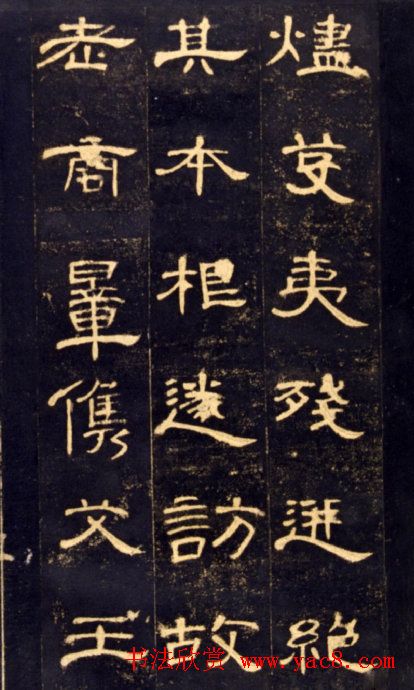 燼芟夷殘迸絕
其本根遂訪故
老商量儁艾王
书法欣赏 www.yac8.com